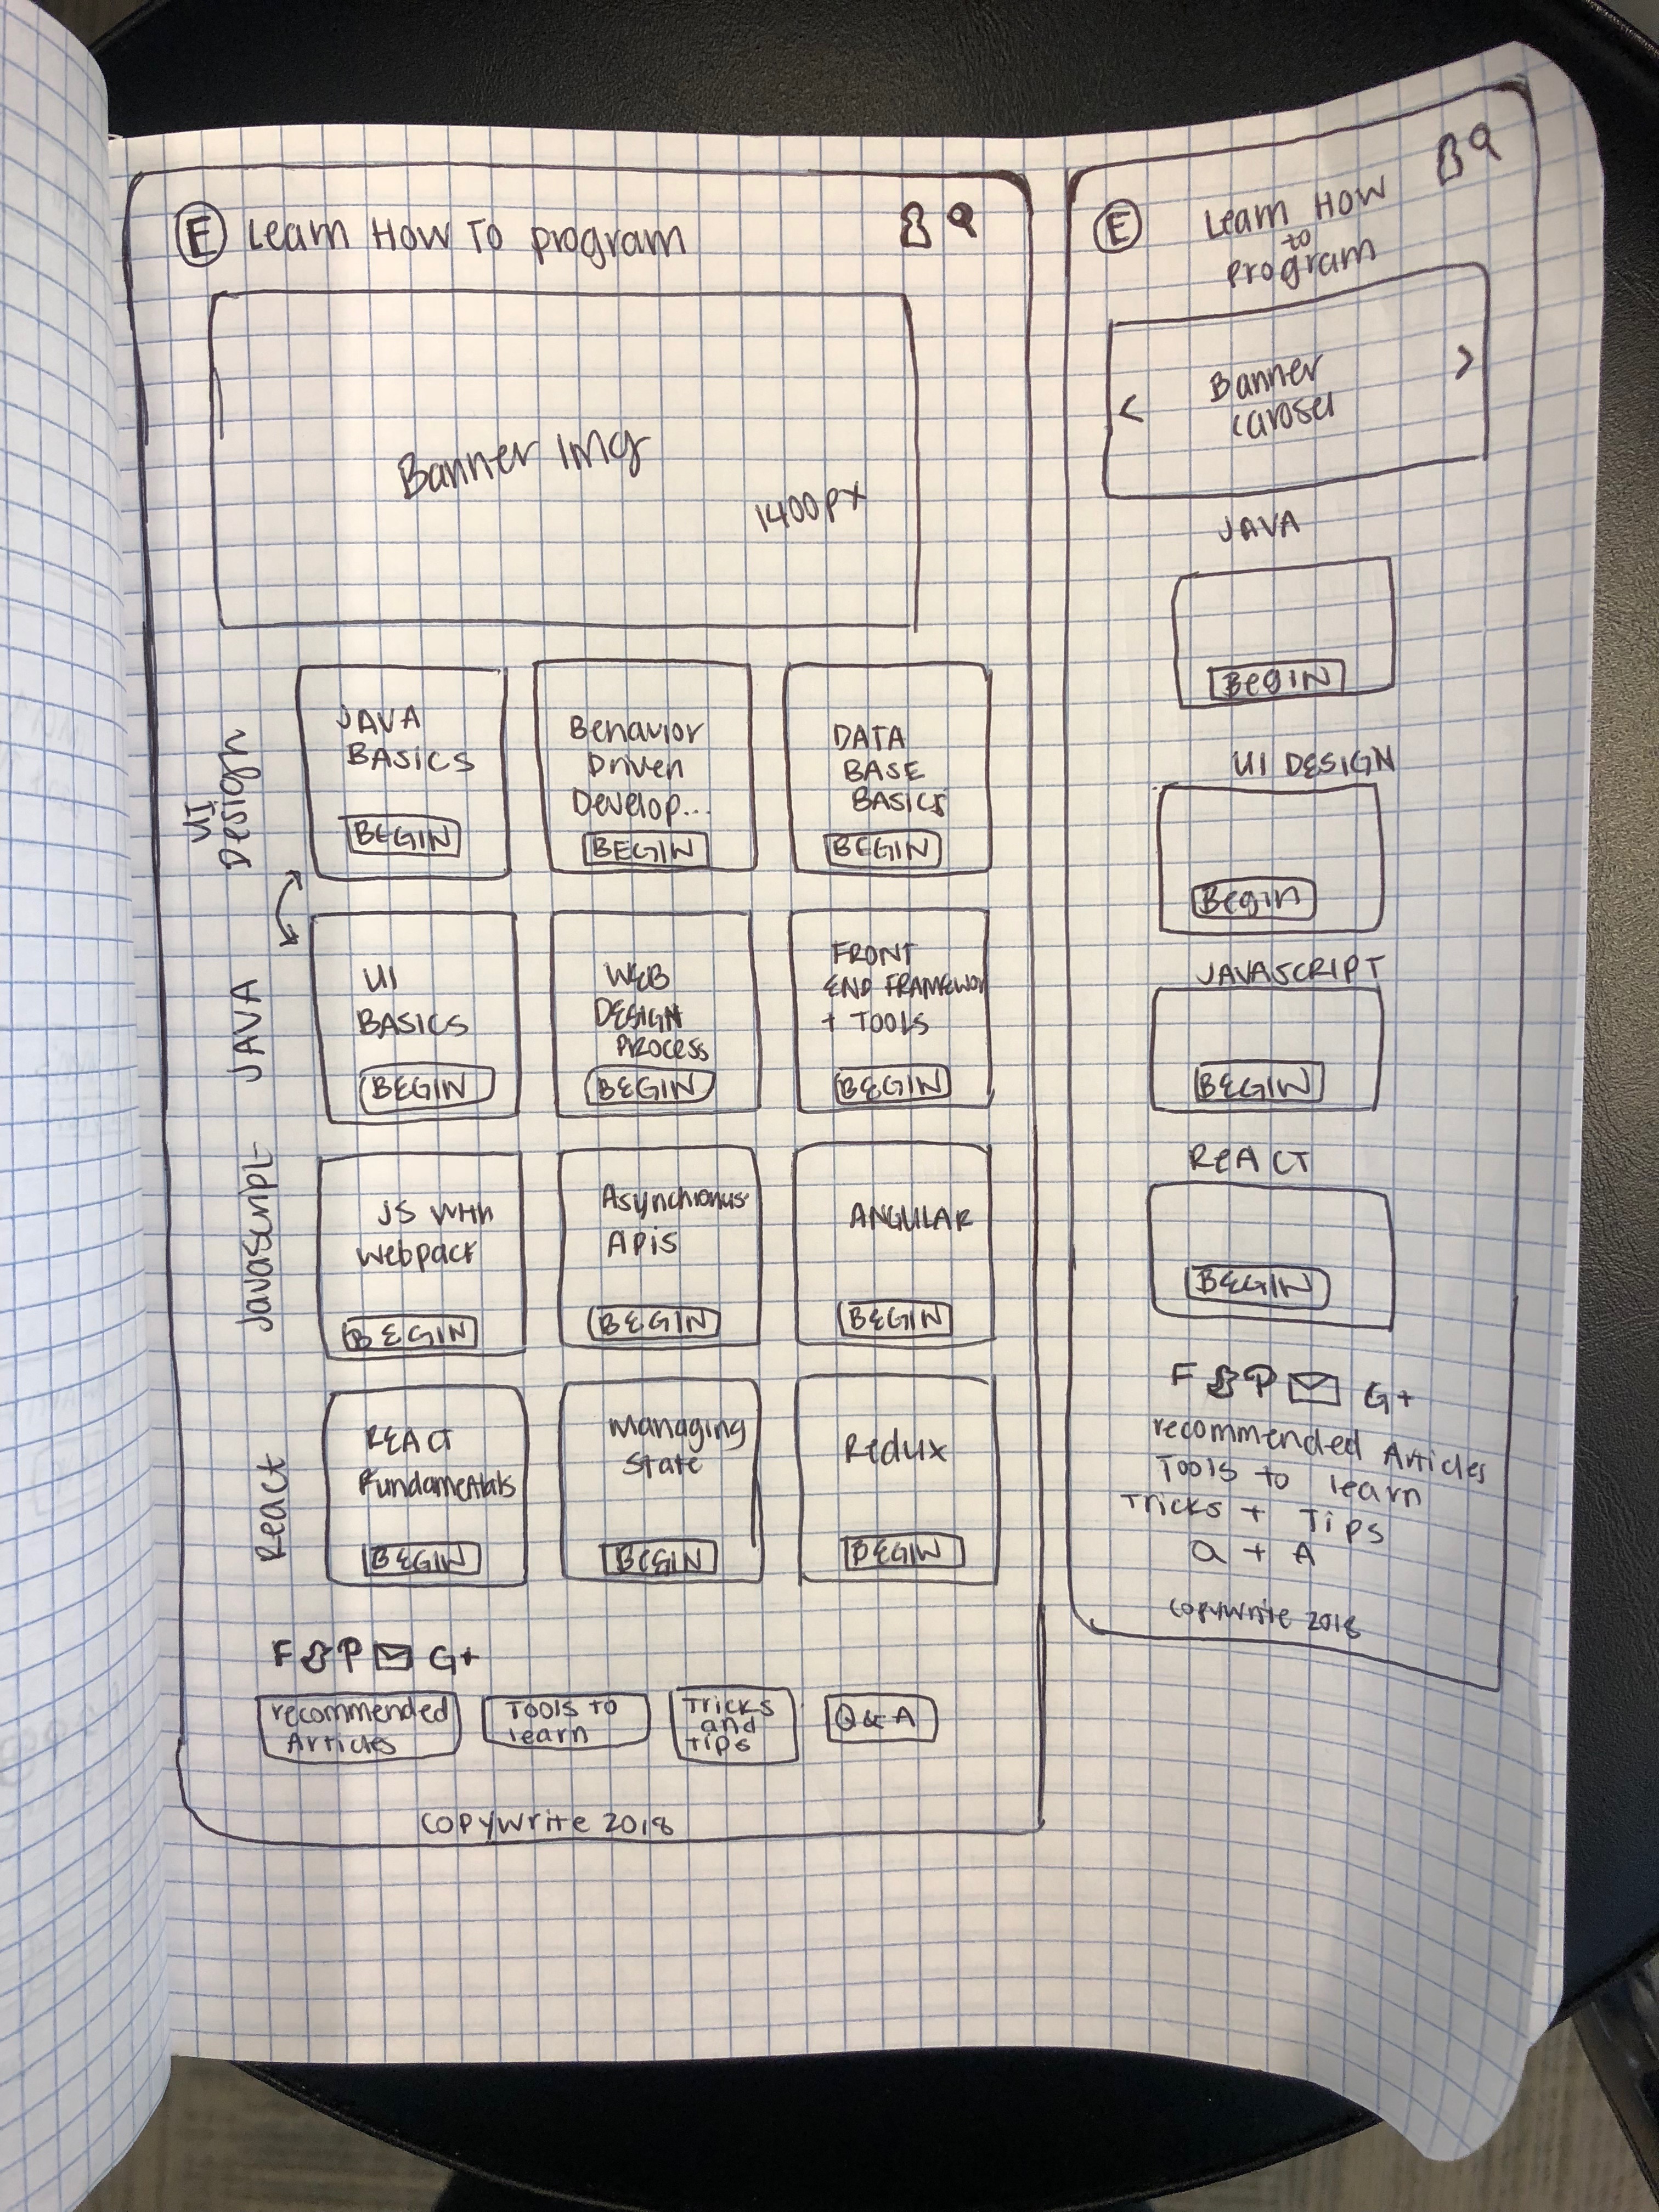 E Learn How To program
Banner Img
1400px
UI
Design
JAVA
BASICS
BEGIN
Behavior
Driven
Develop...
BEGIN
DATA
BASE
BASICS
BEGIN
JAVA
UI
BASICS
BEGIN
WEB
DESIGN
PROCESS
BEGIN
FRONT
END FRAMEWOR
+ TOOLS
BEGIN
Javascript
JS with
webpack
BEGIN
Asynchronus
APIs
BEGIN
ANGULAR
BEGIN
React
REACT
Fundamentals
BEGIN
Managing
State
BEGIN
Redux
BEGIN
F P G+
recommended
Articles
Tools to
learn
Tricks
and
tips
Q & A
copywrite 2018
E
Learn How
to
program
< Banner >
carosel
JAVA
BegIN
UI DESIGN
Begin
JAVASCRIPT
BEGIN
ReACT
BEGIN
F P G+
recommended Articles
Tools to learn
Tricks + Tips
Q + A
copywrite 2018